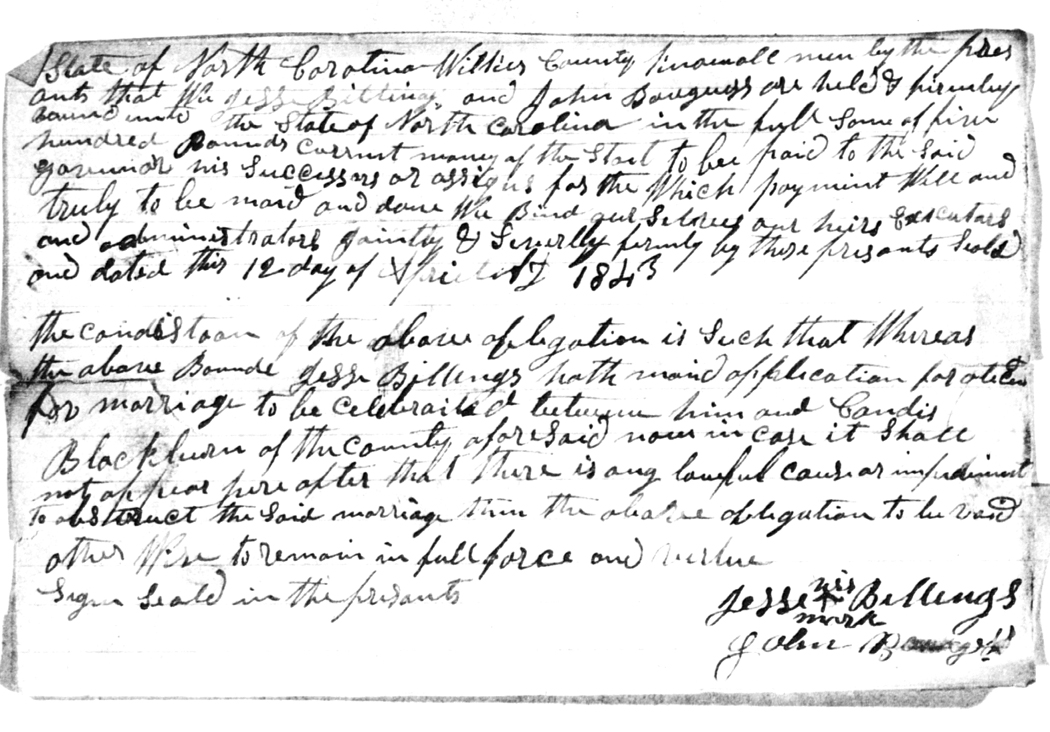 State of North Carolina Wilkes County Knowall men by the pres
ants that We Jesse Billings and John Bouguss are held & firmley
Bound unto the State of North Carolina in the full Some of five
hundred Pounds Currint money of the State to bee paid to the Said
govennor his Successrs or assigns for the Which payment Will and
truly to be maid and done We Bind our Selves our heirs Executars
and administrators Jointly & Severlly firmly by these presants Seald
and dated this 12 day of April 1843
the condistoan of the above obligation is Such that Whereas
the above Bounde Jesse Billings hath maid application for
for marriage to be Celebraited between him and Candis
Blackburn of the County aforesaid now in case it Shall
not appear here after that there is any lawful cause or impediment
to abstruct the Said marriage then the above obligation to be void
other Wise to remain in full force and virtue
Sign Seald in the presants
his
Jesse X Billings
mark
John